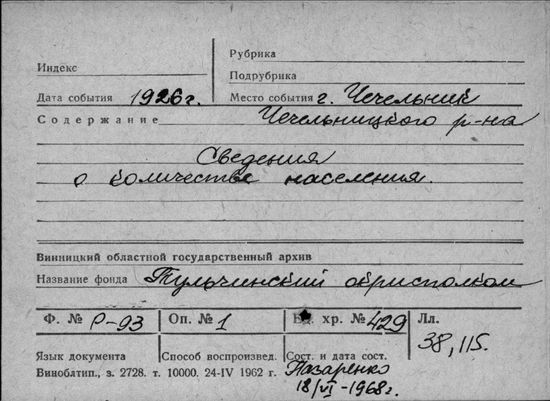 Индекс
Рубрика
Подрубрика
Дата события 1926 г. Место события г. Чечельник
Содержание Чечельницкого р-на
Сведения
о количестве населения.
Винницкий областной государственный архив
Название фонда Тульчинский окрисполком
Ф. № Р-93 Оп. № 1 Ед. хр. № 429 Лл. 38, 115.
Язык документа Способ воспроизвед. Сост. и дата сост.
Виноблтип., з. 2728. т. 10000. 24-IV 1962 г. Назаренко
18/VI-1968г.